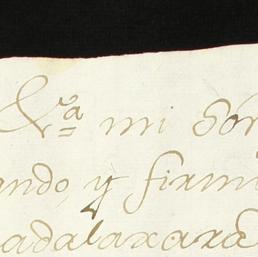 &ra mi Sor
ando, y firm
adalaxara